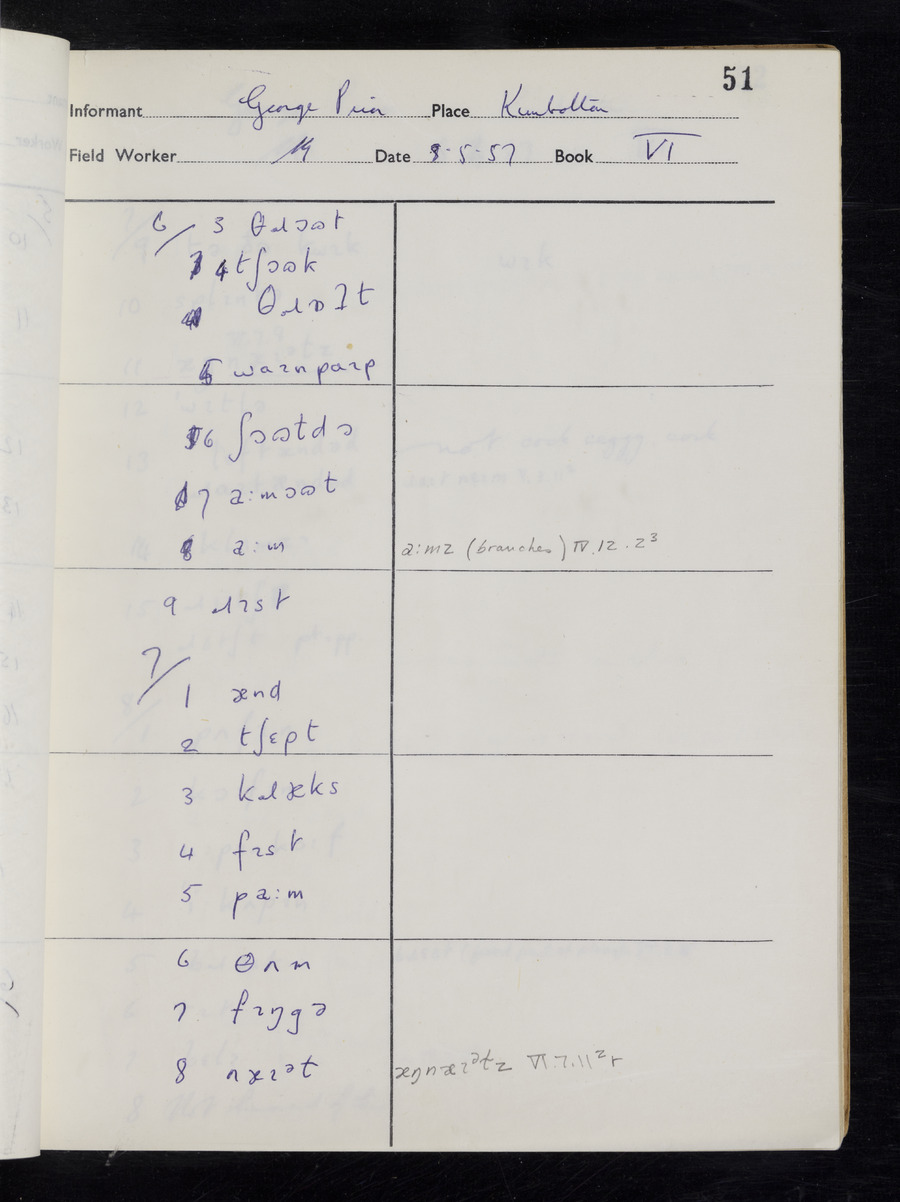 51
Informant George Prior Place Kimbolton
Field Worker Date 8·5·57 Book VI
6/ 3 θɹɔʊt
4 tʃɔʊk
θɹɒʔt
5 waɪnpaɪp
6 ʃɔʊtdə
7 a:mɔʊt
8 a:m
a:mz (branches) IV.12.2³
9 ɹɪst
7/
1 ænd
2 tʃɛpt
3 kɹæks
4 fɪst
5 pa:m
6 θʌm
7 fɪŋgə
8 næɪᵊt
æŋnæɪᵊtz VI.7.11² r